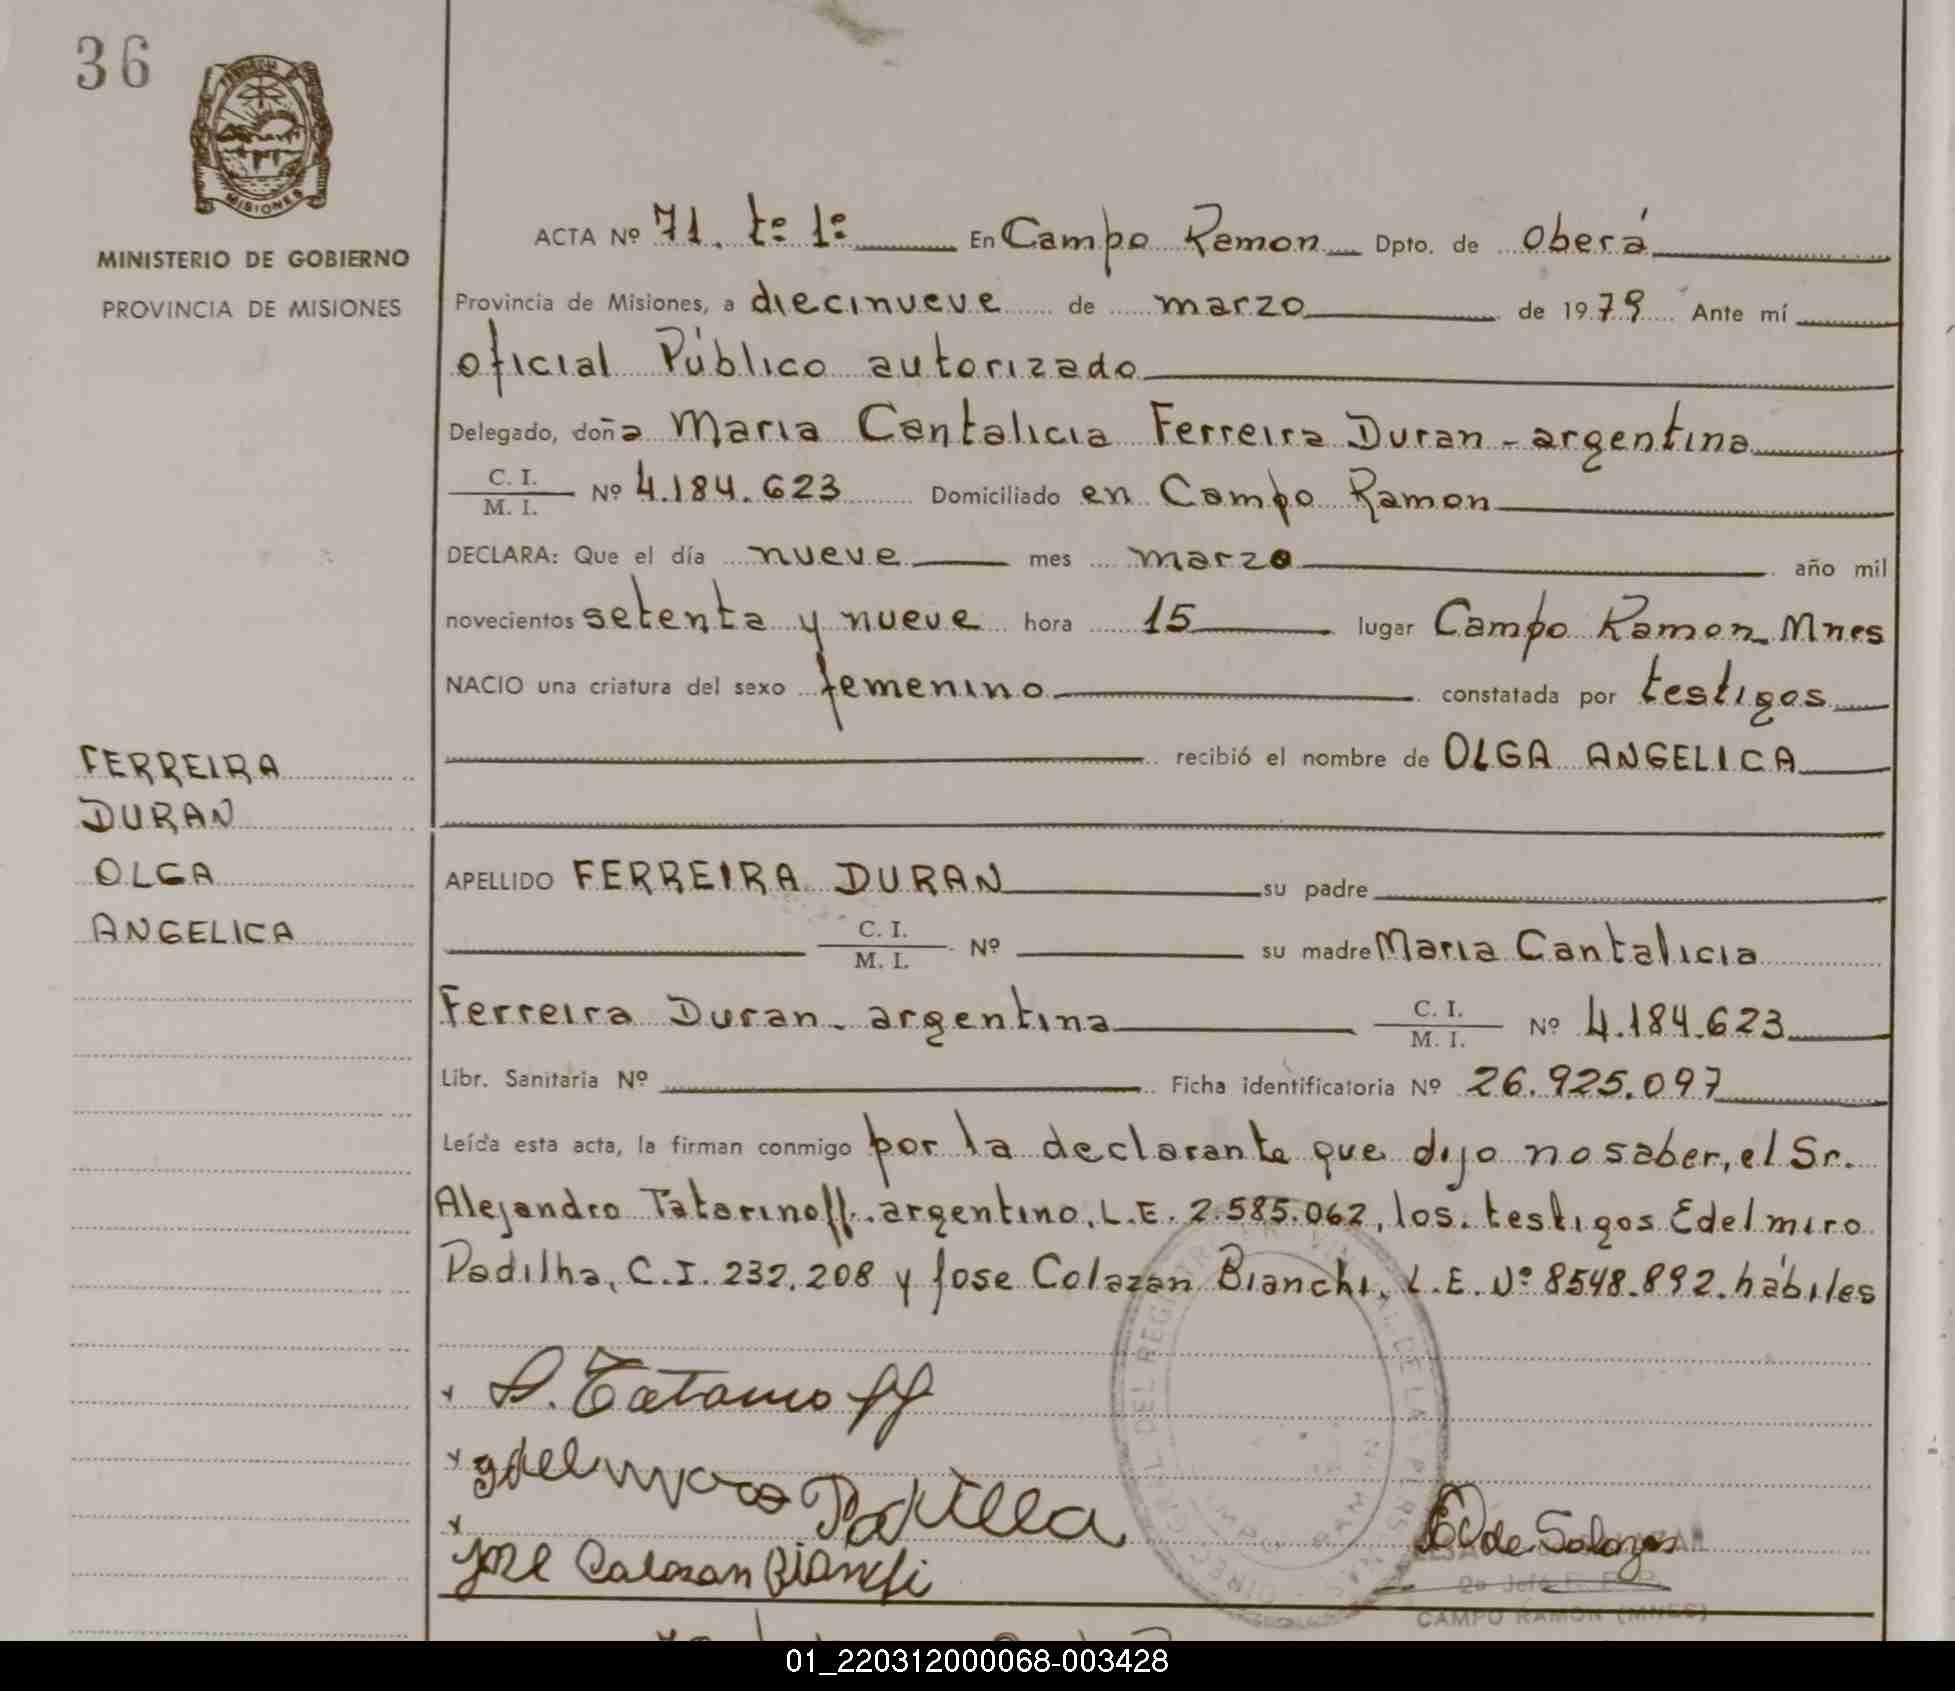 36
MISIONES
MINISTERIO DE GOBIERNO
PROVINCIA DE MISIONES
ACTA Nº 71. tº 1º En Campo Ramon Dpto. de Oberá
Provincia de Misiones, a diecinueve de marzo de 1979 Ante mí
oficial Público autorizado
Delegado, doña Maria Cantalicia Ferreira Duran - argentina
C. I.
M. I. Nº 4.184.623 Domiciliado en Campo Ramon
DECLARA: Que el día nueve mes marzo año mil
novecientos setenta y nueve hora 15 lugar Campo Ramon Mnes
NACIO una criatura del sexo femenino constatada por testigos
recibió el nombre de OLGA ANGELICA
FERREIRA
DURAN
OLGA
ANGELICA
APELLIDO FERREIRA DURAN su padre
C. I.
M. I. Nº su madre Maria Cantalicia
Ferreira Duran - argentina C. I.
M. I. Nº 4.184.623
Libr. Sanitaria Nº Ficha identificatoria Nº 26.925.097
Leída esta acta, la firman conmigo por la declarante que dijo no saber, el Sr.
Alejandro Tatarinoff. argentino, L.E. 2.585.062, los testigos Edelmiro
Padilha, C.I. 232.208 y Jose Colazan Bianchi, L.E. Nº 8548.892. hábiles
Padilla
Jose Calazan Bianchi
de Salazar
CAMPO RAMON (MNES)
01_220312000068-003428